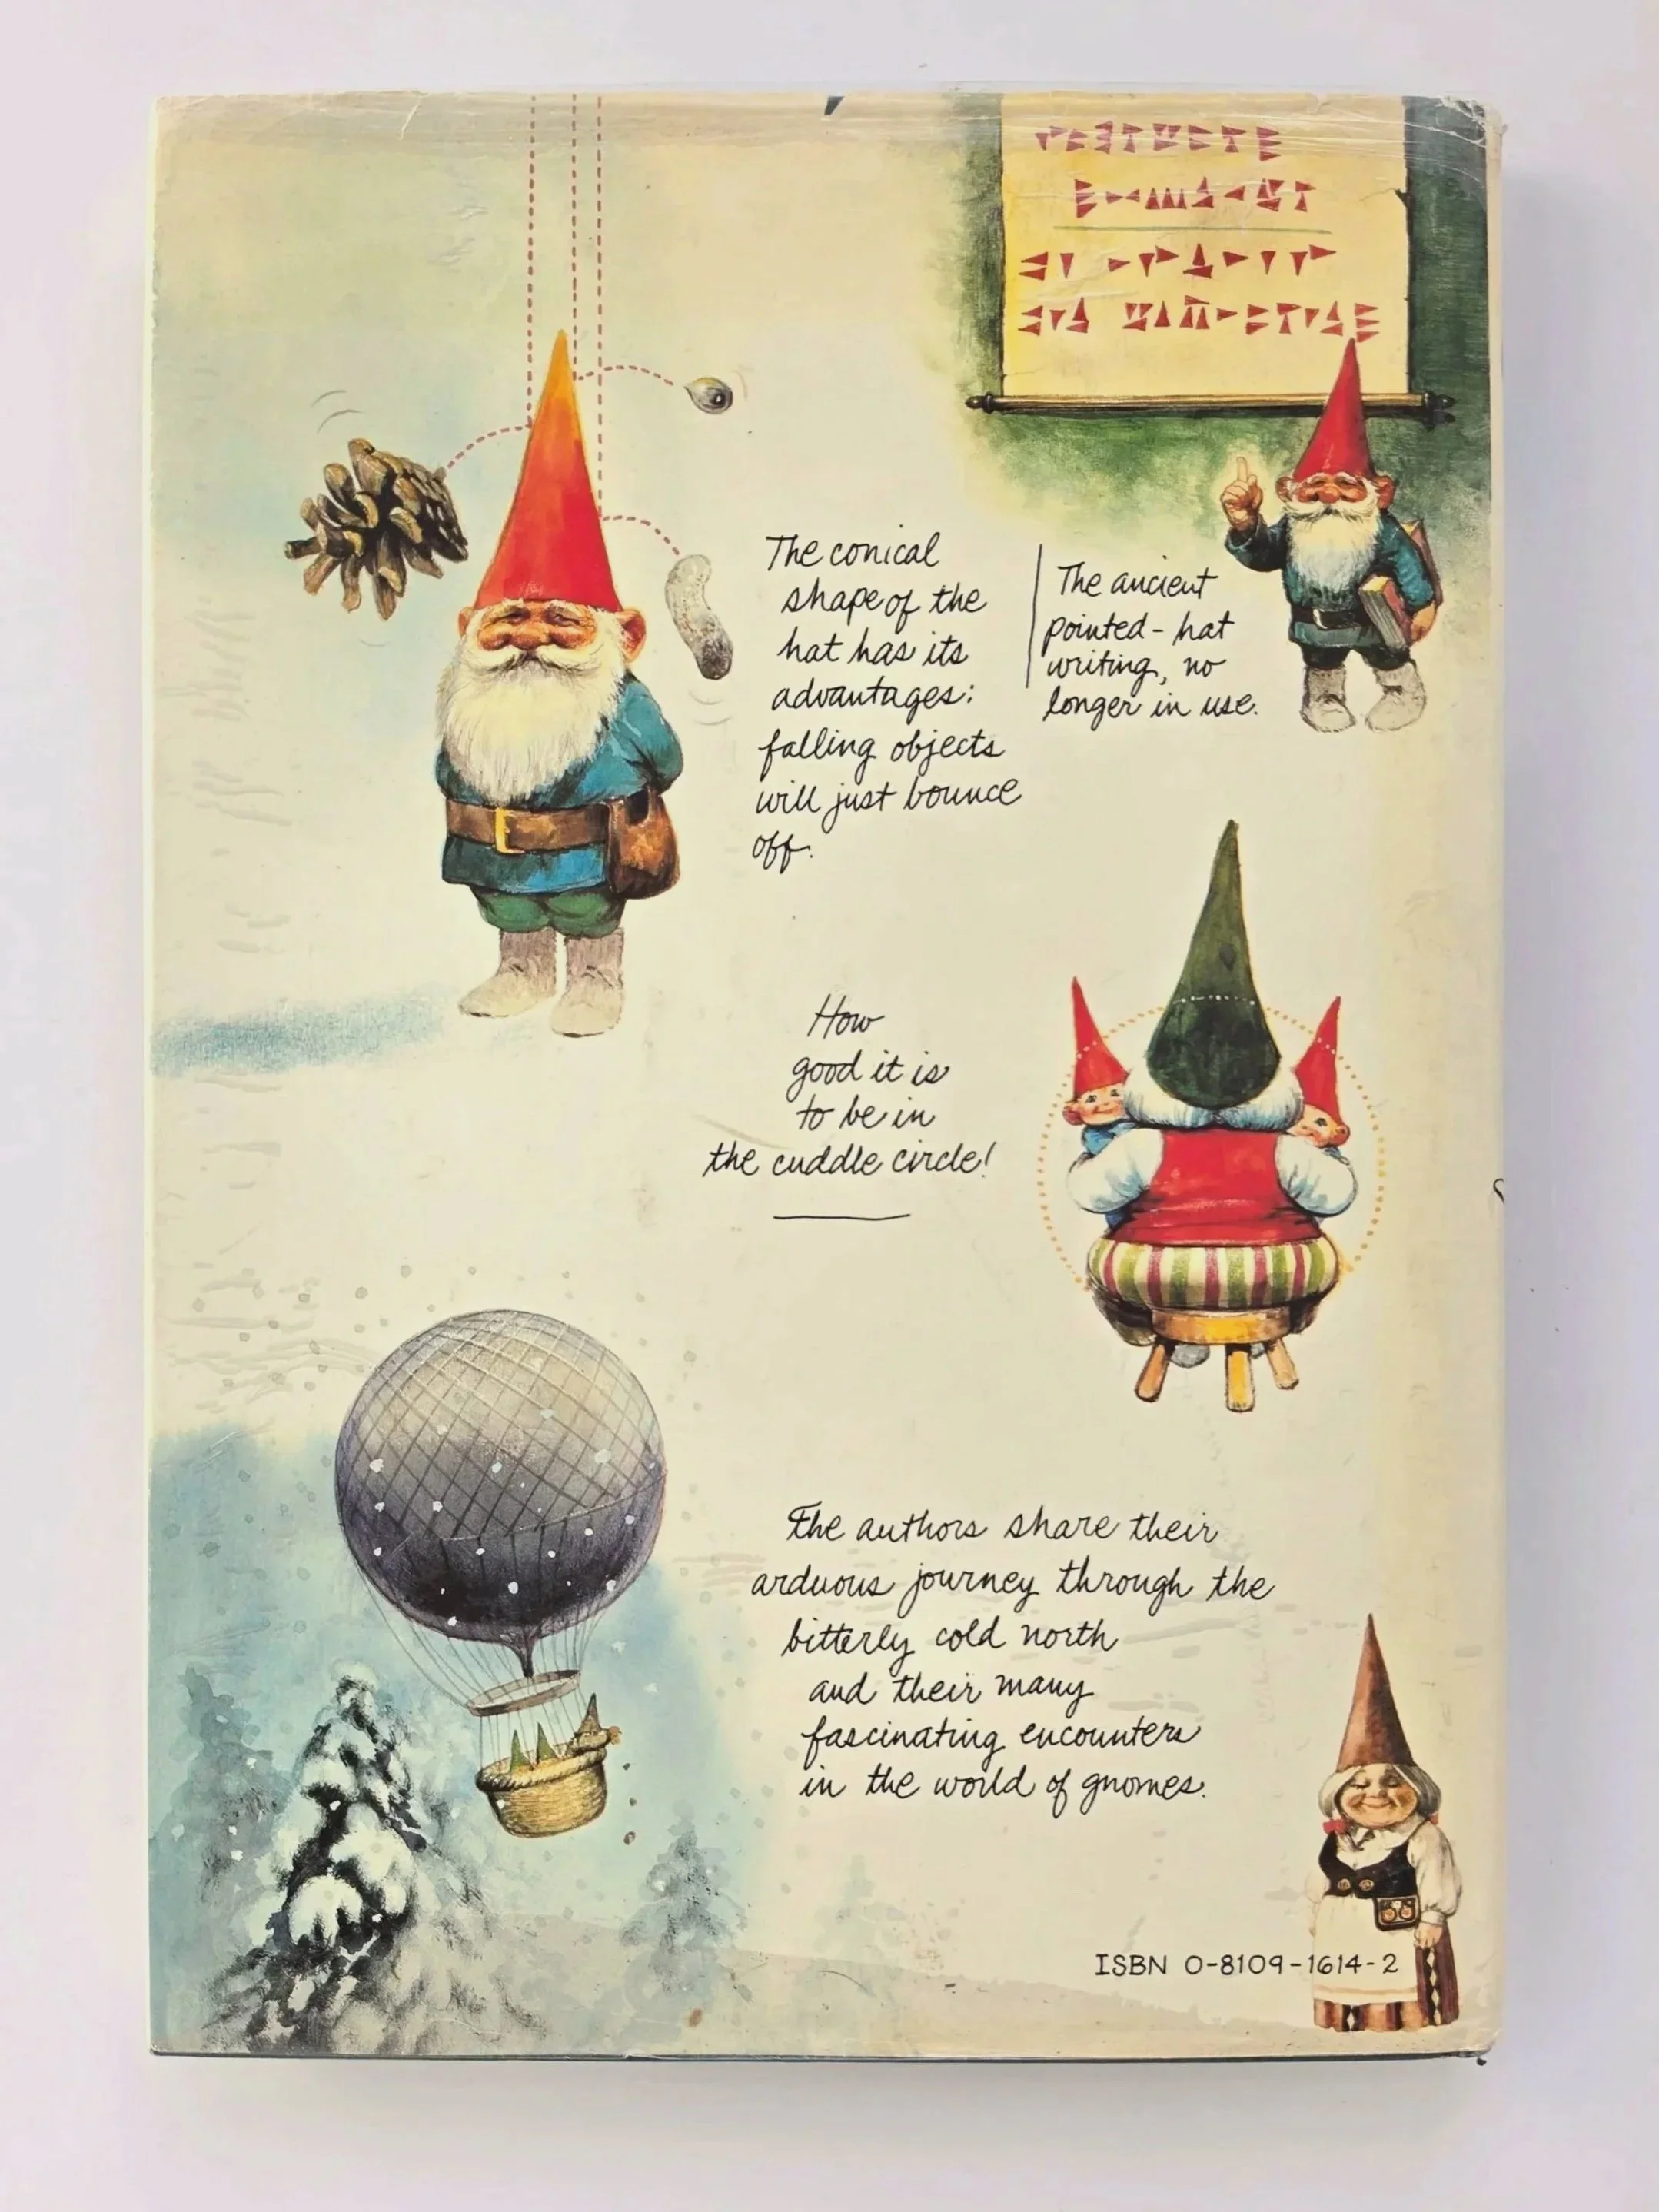 The conical
shape of the
hat has its
advantages:
falling objects
will just bounce
off.
The ancient
pointed-hat
writing, no
longer in use.
How
good it is
to be in
the cuddle circle!
The authors share their
arduous journey through the
bitterly cold north
and their many
fascinating encounters
in the world of gnomes.
ISBN 0-8109-1614-2